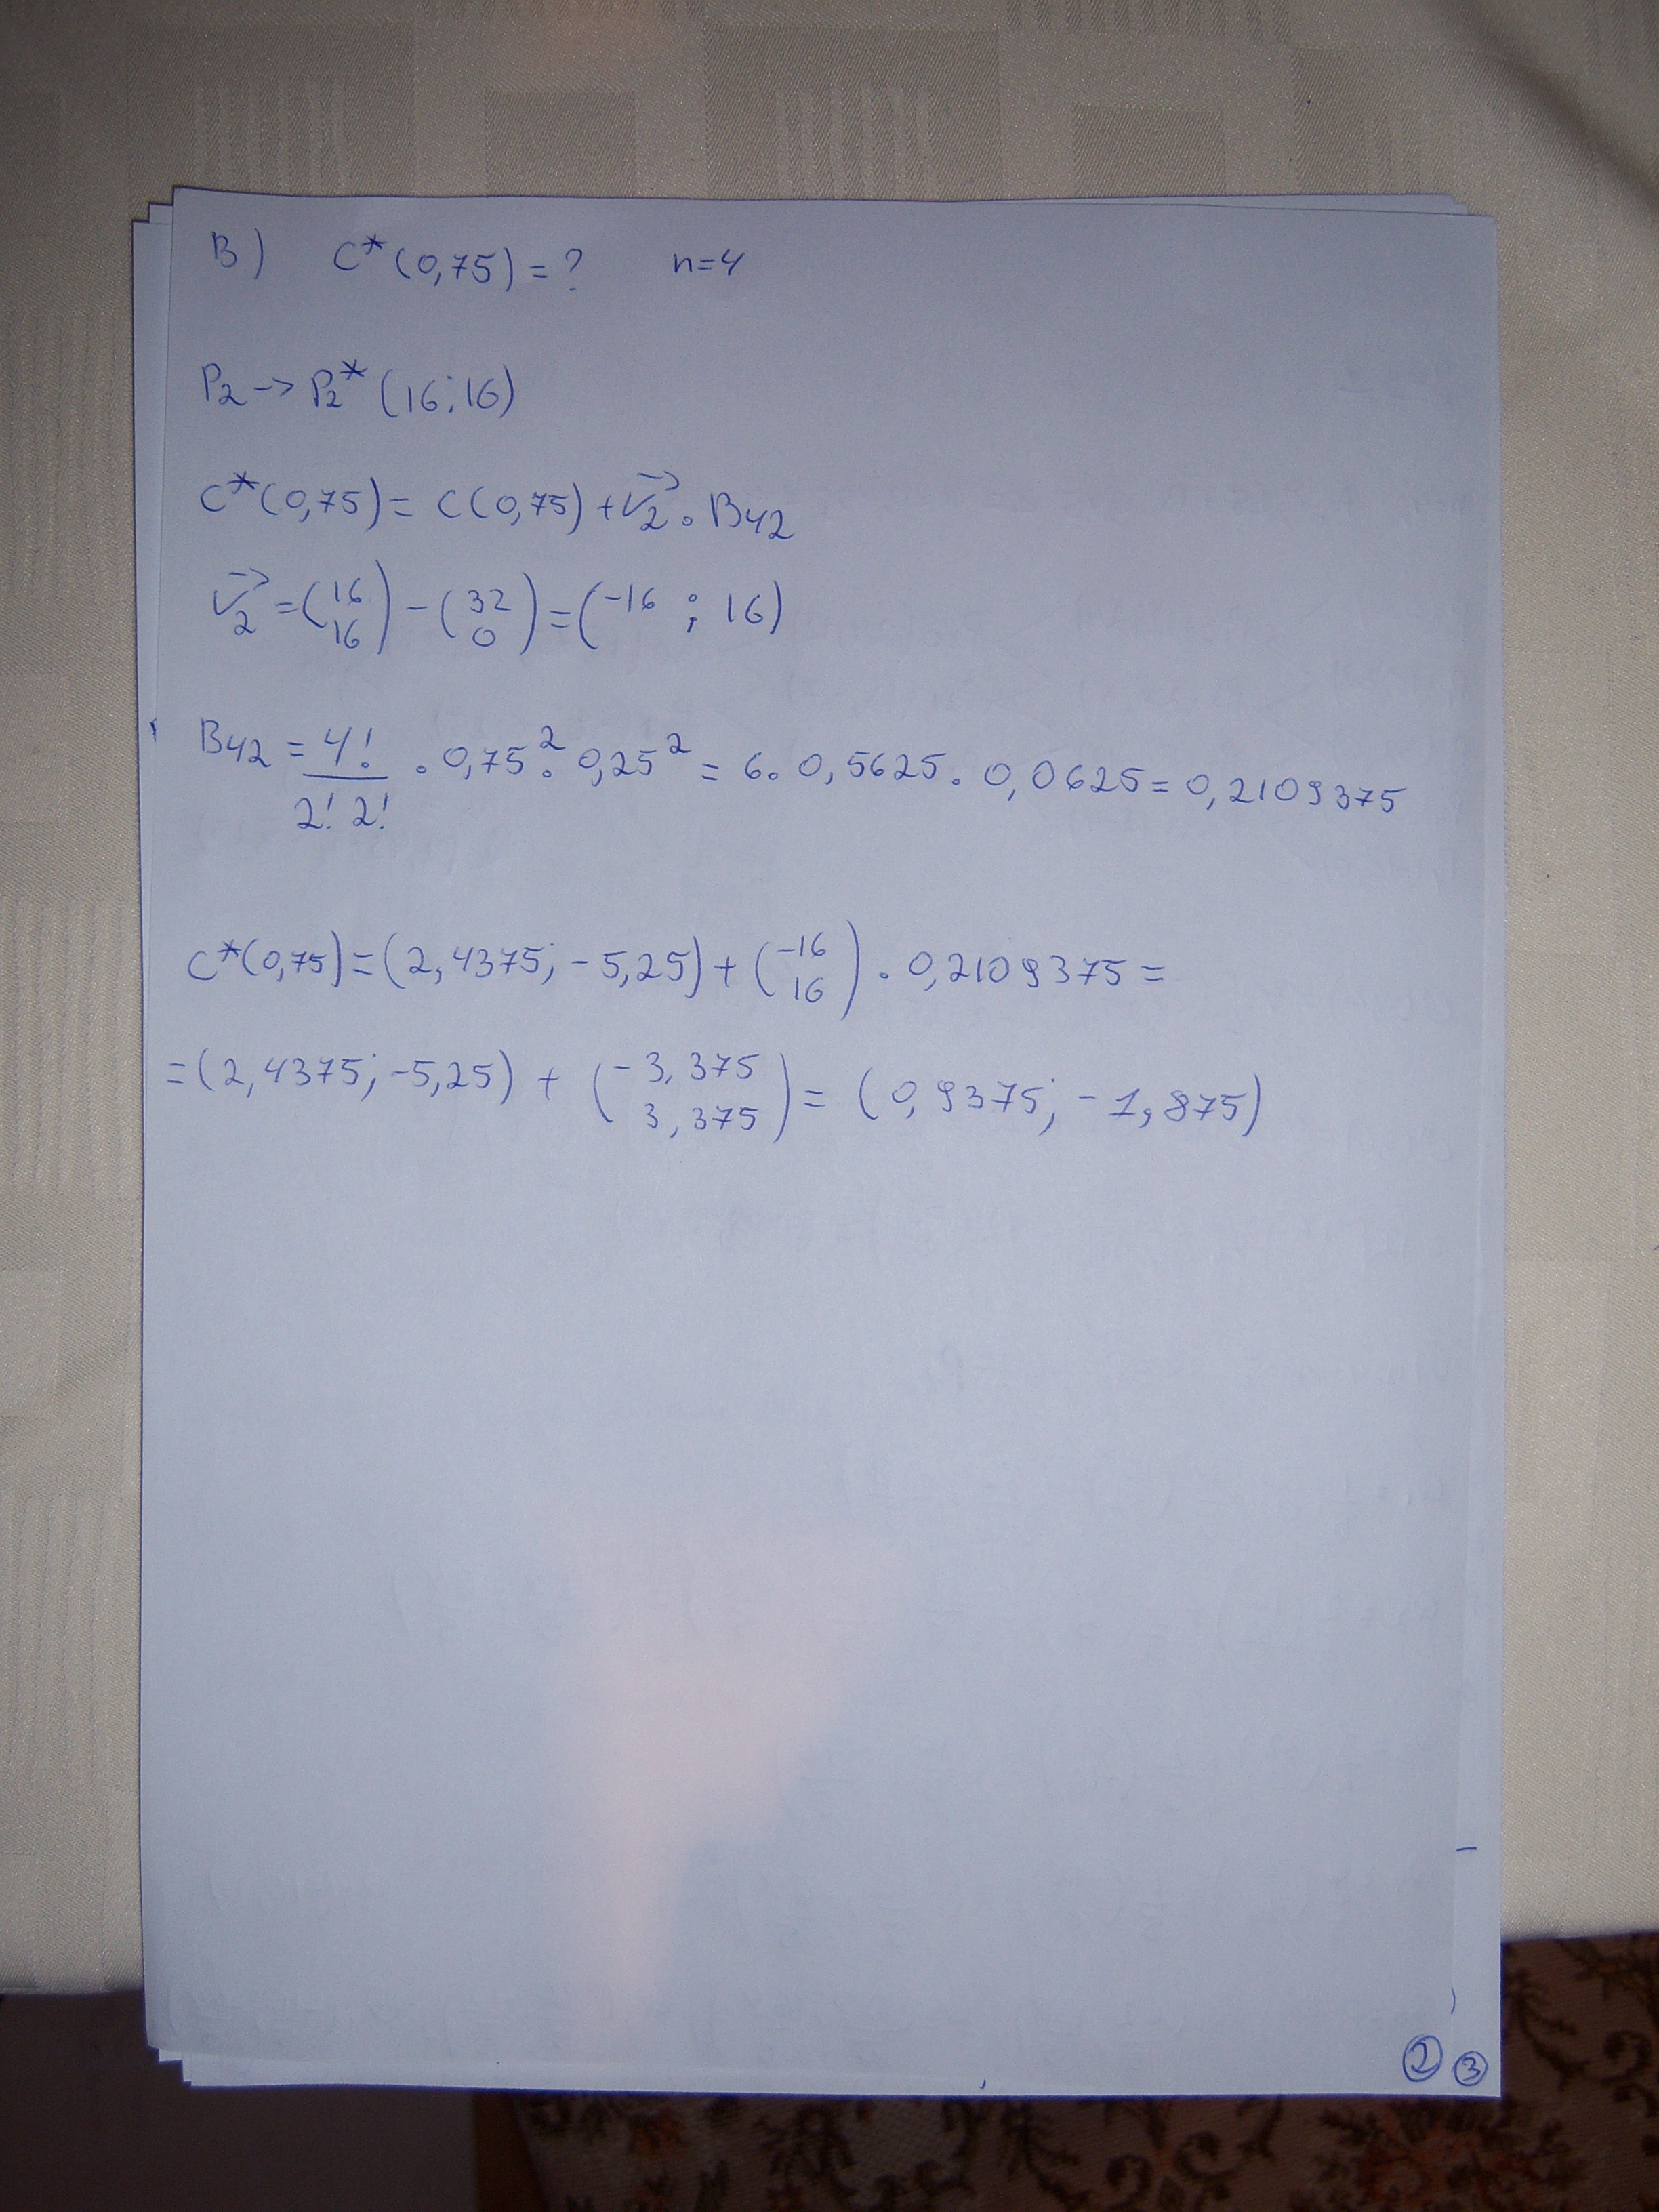 B) C*(0,75)=? n=4
P2 -> P2* (16;16)
C*(0,75)= C(0,75)+V2→ · B42
V2→ =(16 16)-(32 0)=(-16 ; 16)
B42 = 4!/2!2! · 0,75² · 0,25² = 6 · 0,5625 · 0,0625 = 0,2109375
C*(0,75)=(2,4375; -5,25)+(-16 16) · 0,2109375 =
=(2,4375; -5,25) + (-3,375 3,375) = (0,9375; -1,875)
2 3